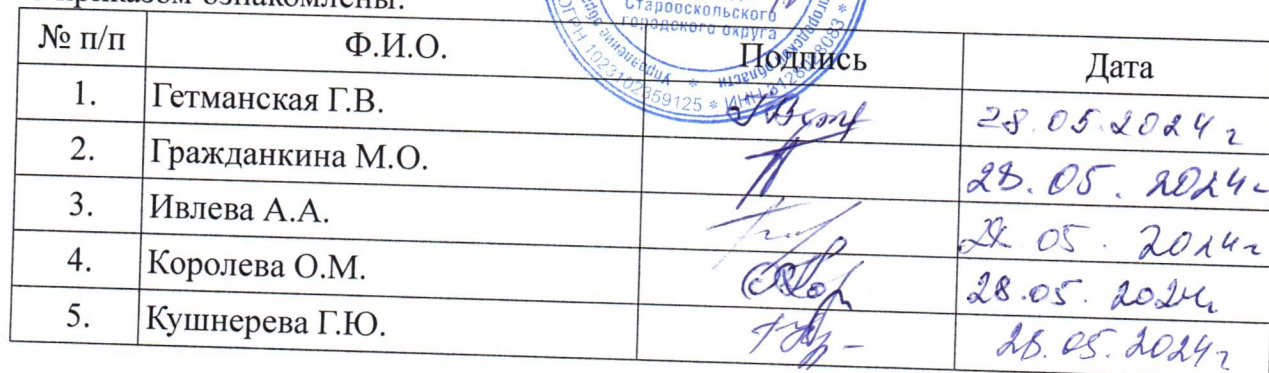 приказом ознакомлены:
Старооскольского
городского округа
ОГРН 1023102359125 * ИНН
№ п/п Ф.И.О. Подпись Дата
1. Гетманская Г.В. 28.05.2024 г
2. Гражданкина М.О. 28.05.2024 г
3. Ивлева А.А. 28.05.2024 г
4. Королева О.М. 28.05.2024 г
5. Кушнерева Г.Ю. 28.05.2024 г